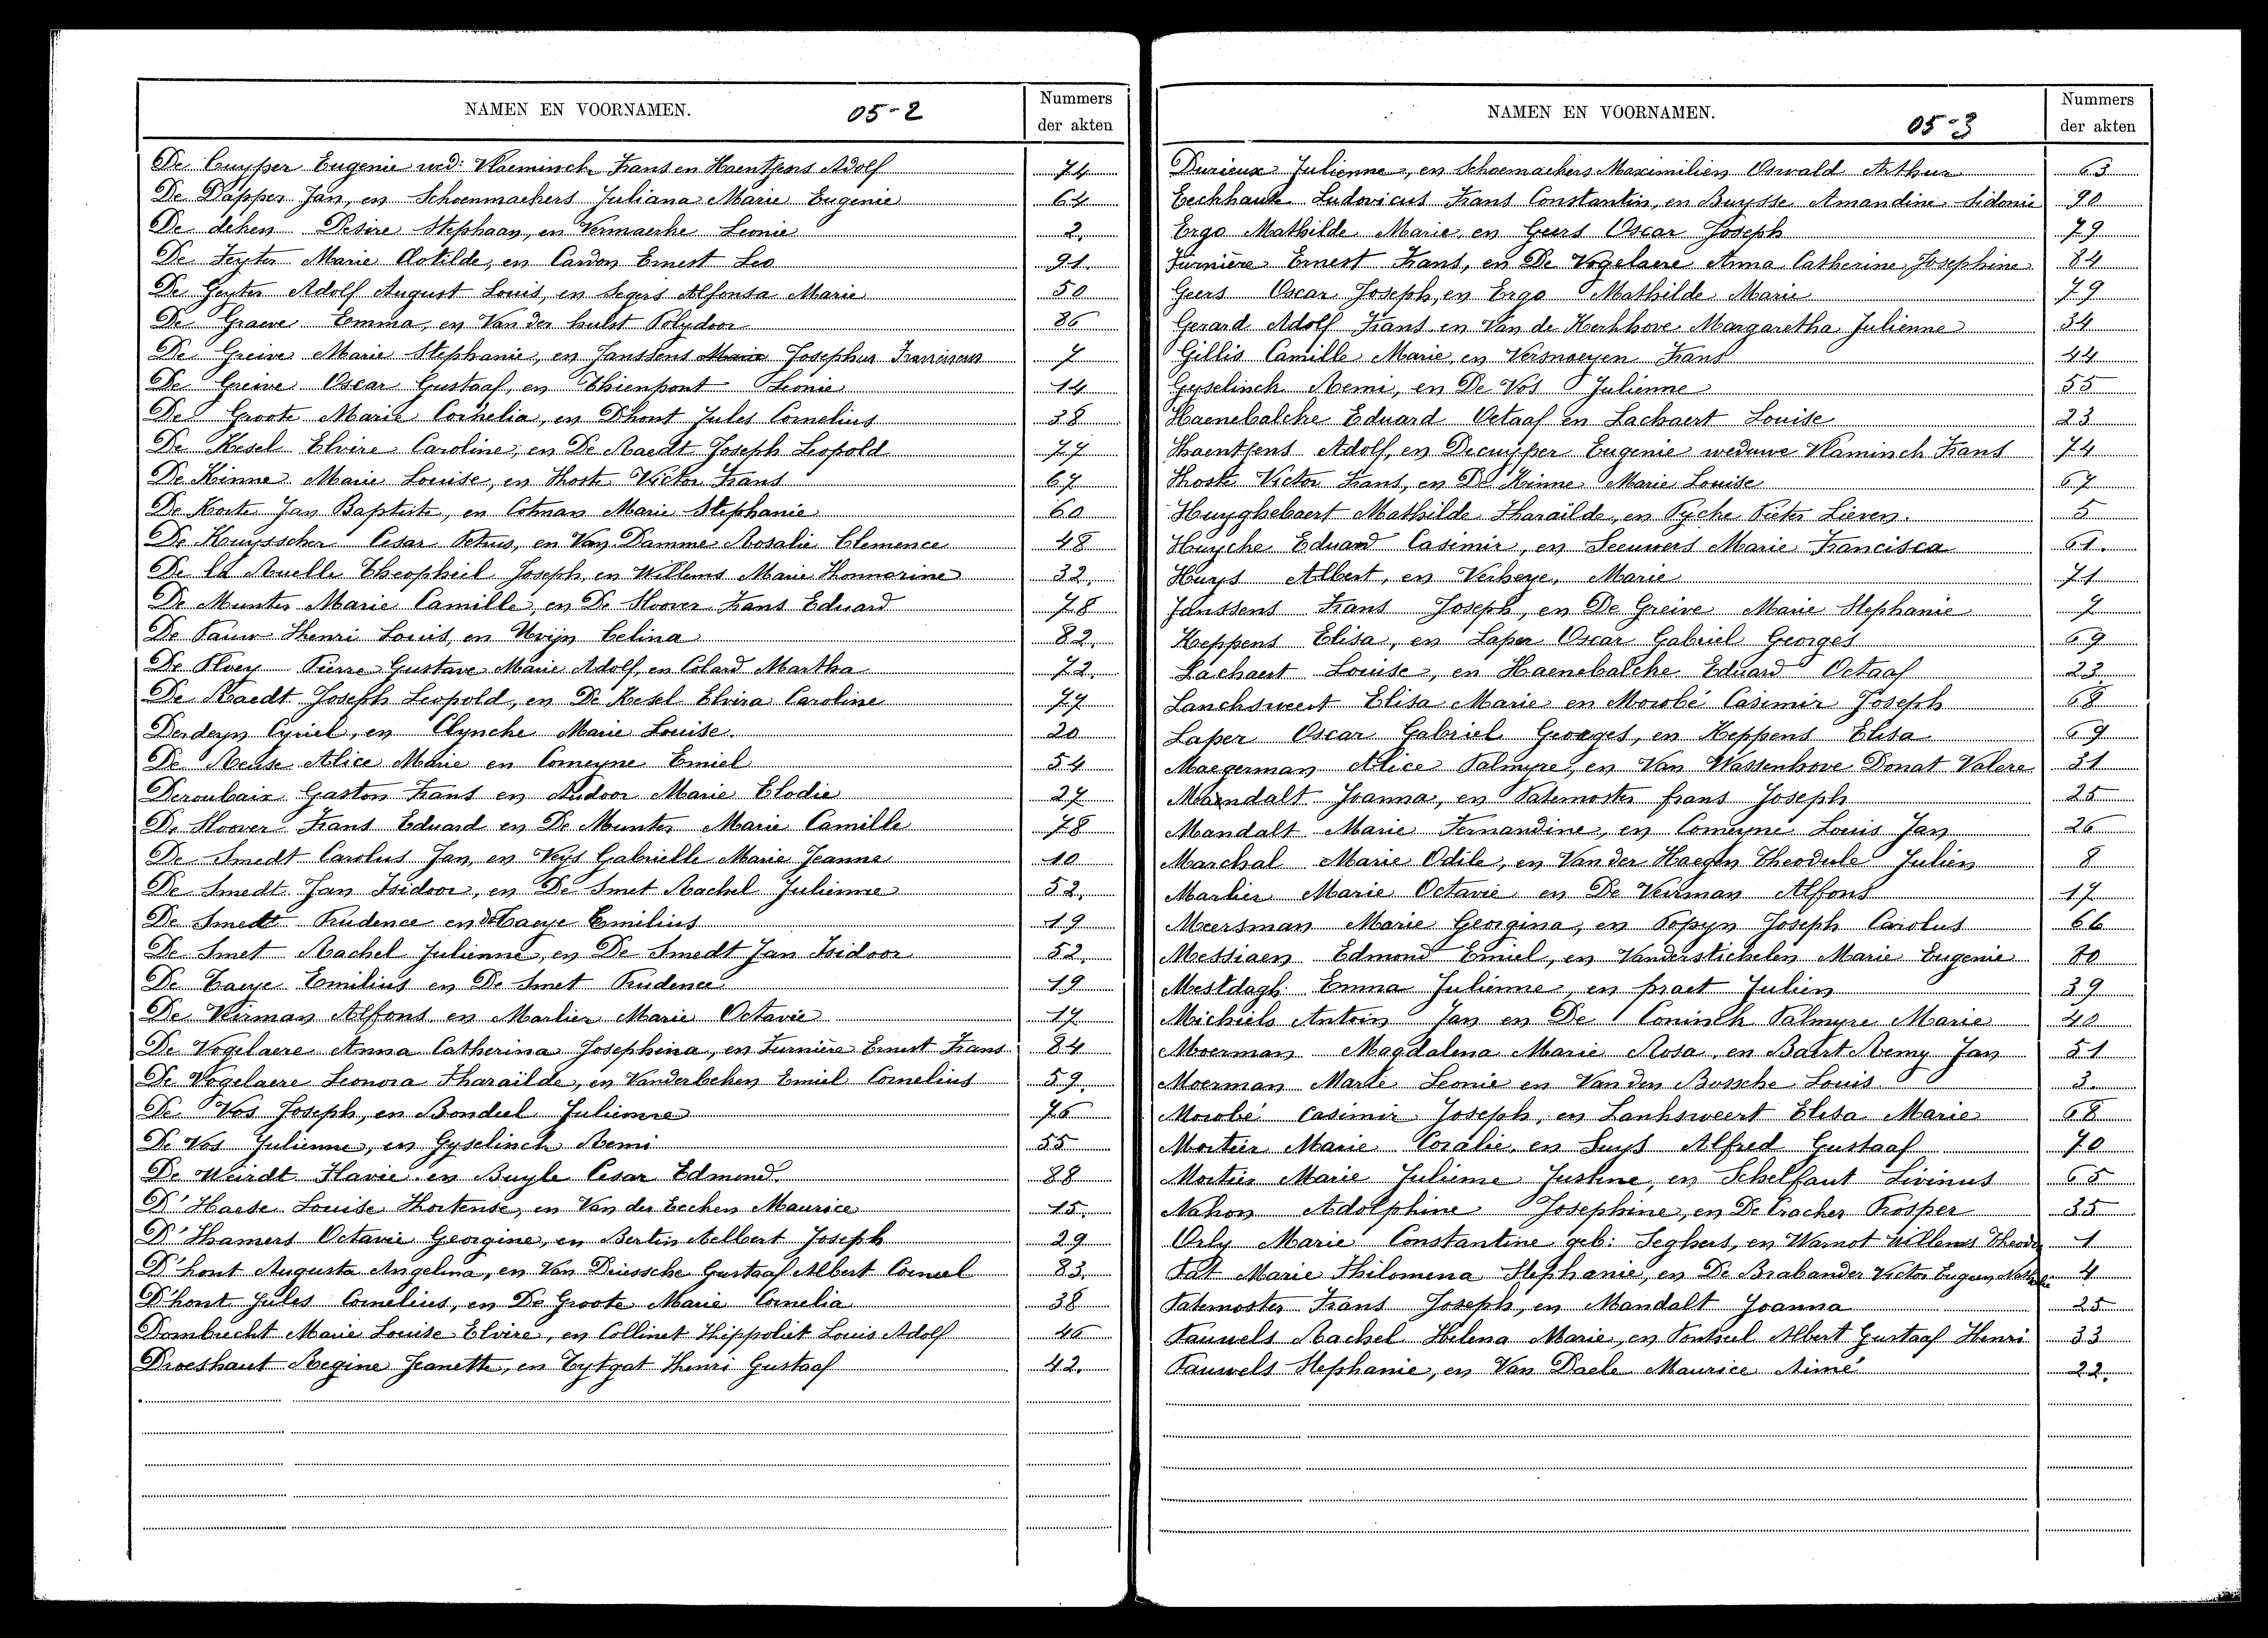 NAMEN EN VOORNAMEN. 05-2 Nummers der akten
De Cuypper Eugenie wed: Vlaeminck Frans en Haentjens Adolf 74
De Dapper Jan, en Schoenmaekers Juliana Marie Eugenie 64
De deken Desire Stephaan, en Vermaerke Leonie 2.
De Feyter Marie Clotilde, en Cardon Ernest Leo 91.
De Geyter Adolf August Louis, en Segers Alfonsa Marie 50
De Graeve Emma, en Van der hulst Polydoor 86
De Greive Marie Stephanie, en Janssens Marie Josephus Franciscus 7
De Greive Oscar Gustaaf, en Thienpont Leonie 14
De Groote Maria Cornelia, en Dhont Jules Cornelius 38
De Kesel Elvire Caroline, en De Raedt Joseph Leopold 77
De Kinne Marie Louise, en Hoste Victor Frans 67
De Korte Jan Baptiste, en Cotman Marie Stephanie 60
De Kuysscher Cesar Petrus, en Van Damme Rosalie Clemence 48
De la Ruelle Theophiel Joseph, en Willems Marie Honnorine 32.
De Munter Marie Camille, en De Sloover Frans Eduard 78
De Pauw Henri Louis, en Uvijn Celina 82.
De Ploey Pierre Gustave Marie Adolf, en Colard Martha 72.
De Raedt Joseph Leopold, en De Kesel Elvira Caroline 77
Derdeyn Cyriel, en Clyncke Marie Louise. 20
De Reuse Alice Marie en Comeyne Emiel 54
Deroubaix Gaston Frans en Audoor Marie Elodie 27
De Sloover Frans Eduard en De Munter Marie Camille 78
De Smedt Carolus Jan, en Neys Gabrielle Marie Jeanne 10
De Smedt Jan Isidoor, en De Smet Rachel Julienne 52.
De Smedt Prudence en de Taeye Emilius 19
De Smet Rachel Julienne, en De Smedt Jan Isidoor 52.
De Taeye Emilius en De Smet Prudence 19
De Veirman Alfons en Marlier Marie Octavie 17
De Vogelaere Anna Catherina Josephina, en Furnière Ernest Frans 84
De Vogelaere Leonora Tharaïlde, en Vanderbeken Emiel Cornelius 59.
De Vos Joseph, en Bonduel Julienne 76
De Vos Julienne, en Gyselinck Remi 55
De Weirdt Flavie en Buyle Cesar Edmond. 88
D'Haese Louise Hortense, en Van der Eecken Maurice 15.
D'Hamers Octavie Georgine, en Bertin Aelbert Joseph 29
D'hont Augusta Angelina, en Van Driessche Gustaaf Albert Corneel 83.
D'hont Jules Cornelius, en De Groote Marie Cornelia 38
Dombrecht Marie Louise Elvire, en Collinet Hippoliet Louis Adolf 46
Droeshaut Regine Jeanette, en Tytgat Henri Gustaaf 42.
NAMEN EN VOORNAMEN. 05-3 Nummers der akten
Durieux Julienne, en Schoemaekers Maximilien Oswald Arthur 63
Eeckhaut Ludovicus Frans Constantin, en Buysse Amandine Sidonie 90
Ergo Mathilde Marie, en Geers Oscar Joseph 79
Furnière Ernest Frans, en De Vogelaere Anna Catherine Josephine 84
Geers Oscar Joseph, en Ergo Mathilde Marie 79
Gerard Adolf Frans en Van de Kerkhove Margaretha Julienne 34
Gillis Camille Marie, en Versnaeyen Frans 44
Gyselinck Remi, en De Vos Julienne 55
Haenebalcke Eduard Octaaf en Lachaert Louise 23
Haentjens Adolf, en Decuypper Eugenie weduwe Vlaminck Frans 74
Hoste Victor Frans, en De Kinne Marie Louise 67
Huyghebaert Mathilde Tharaïlde, en Pycke Pieter Lieven. 5
Huycke Eduard Casimir, en Leeuwers Marie Francisca 61.
Huys Albert, en Verheye, Marie 71
Janssens Frans Joseph, en De Greive Marie Stephanie 7
Keppens Elisa, en Laper Oscar Gabriel Georges 69
Lachaert Louise, en Haenebalcke Eduard Octaaf 23
Lancksweert Elisa Marie en Morobé Casimir Joseph 68
Laper Oscar Gabriel Georges, en Keppens Elisa 69
Maegerman Alice Palmyre, en Van Wassenhove Donat Valere 31
Mandalt Joanna, en Paternoster frans Joseph 25
Mandalt Marie Fernandine, en Comeyne Louis Jan 26
Marchal Marie Odile, en Van der Haegen Theodule Julien 8
Marlier Marie Octavie en De Veirman Alfons 17
Meersman Marie Georgina, en Popyn Joseph Carolus 66
Messiaen Edmond Emiel, en Vanderstichelen Marie Eugenie 80
Mestdagh Emma Julienne, en praet Julien 39
Michiels Antoin Jan en De Coninck Palmyre Marie 40
Moerman Magdalena Marie Rosa, en Baert Remy Jan 51
Moerman Marie Leonie en Van den Bossche Louis 3.
Morobé Casimir Joseph, en Lanksweert Elisa Marie 68
Mortier Marie Coralie, en Suys Alfred Gustaaf 70
Mortier Marie Julienne Justine, en Schelfaut Livinus 65
Nahon Adolphine Josephine, en De Cracher Prosper 35
Orly Marie Constantine geb: Seghers, en Warnot Willems Theodor 1
Pat Marie Philomena Stephanie, en De Brabander Victor Eugeen 4
Paternoster Frans Joseph, en Mandalt Joanna 25
Pauwels Rachel Helena Marie, en Ponteel Albert Gustaaf Henri 33
Pauwels Stephanie, en Van Daele Maurice Aimé 22.